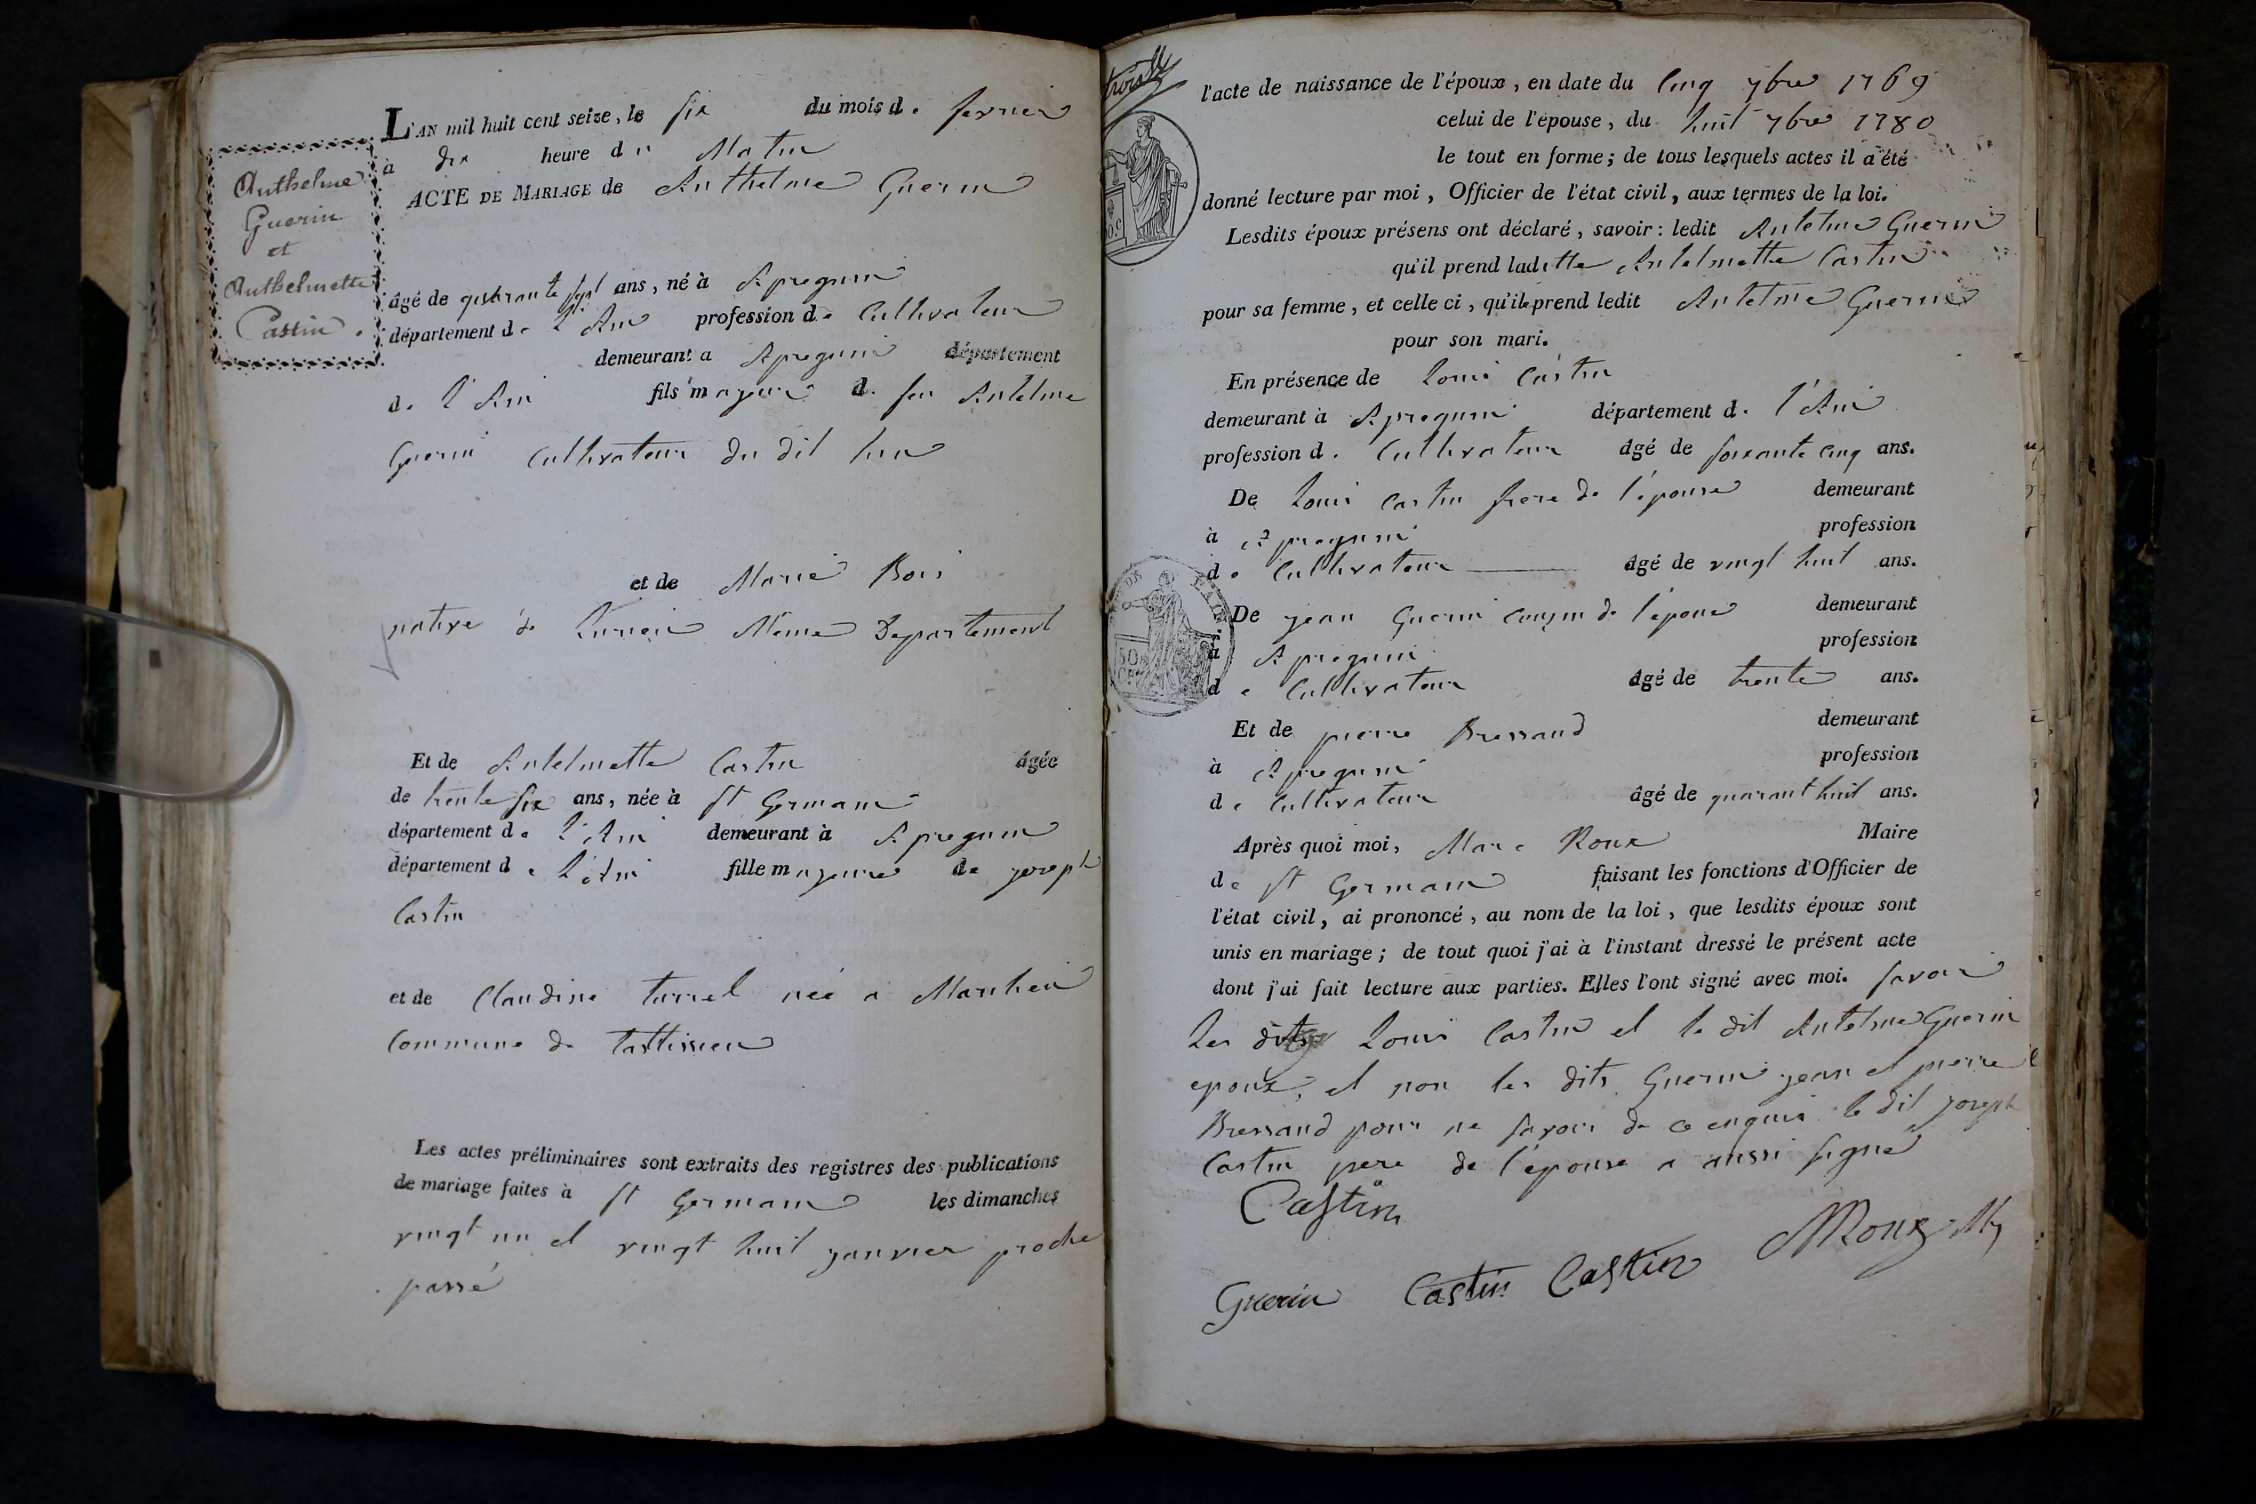 Anthelme
Guerin
et
Anthelmette
Castin.
L'AN mil huit cent seize, le six du mois de fevrier
à dix heure du Matin
ACTE DE MARIAGE de Anthelme Guerin
âgé de quarante sept ans, né à
département de L'Ain profession de Cultivateur
demeurant a département
de L'Ain fils majeur de feu Antelme
Guerin Cultivateur du dit lieu
et de Marie Bois
native de Même Departement
Et de Antelmette Castin âgée
de trente six ans, née à St Germain
département de L'Ain demeurant à
département de L'Ain fille majeure de joseph
Castin
et de Claudine née a
Commune de
Les actes préliminaires sont extraits des registres des publications
de mariage faites à St Germain les dimanches
vingt un et vingt huit janvier proche
passé
l'acte de naissance de l'époux, en date du Cinq 7bre 1769
celui de l'épouse, du huit 7bre 1780
le tout en forme; de tous lesquels actes il a été
donné lecture par moi, Officier de l'état civil, aux termes de la loi.
Lesdits époux présens ont déclaré, savoir: ledit Antelme Guerin
qu'il prend laditte Antelmette Castin
pour sa femme, et celle ci, qu'ile prend ledit Antelme Guerin
pour son mari.
En présence de Louis Castin
demeurant à département de l'Ain
profession de Cultivateur âgé de soixante cinq ans.
De Louis Castin frere de l'épouse demeurant
à profession
de Cultivateur âgé de vingt huit ans.
De jean Guerin cousin de l'epoux demeurant
à profession
de Cultivateur âgé de trente ans.
Et de pierre Bressand demeurant
à profession
de Cultivateur âgé de quarant huit ans.
Après quoi moi, Marc Roux Maire
de St Germain faisant les fonctions d'Officier de
l'état civil, ai prononcé, au nom de la loi, que lesdits époux sont
unis en mariage; de tout quoi j'ai à l'instant dressé le présent acte
dont j'ai fait lecture aux parties. Elles l'ont signé avec moi. savoir
Les dits Louis Castin et le dit Antelme Guerin
epoux, et non les dits Guerin jean et pierre
Bressand pour ne savoir de ce enquis le dit joseph
Castin pere de l'epouse a aussi signé
Castin
Guerin Castin Castin MRoux